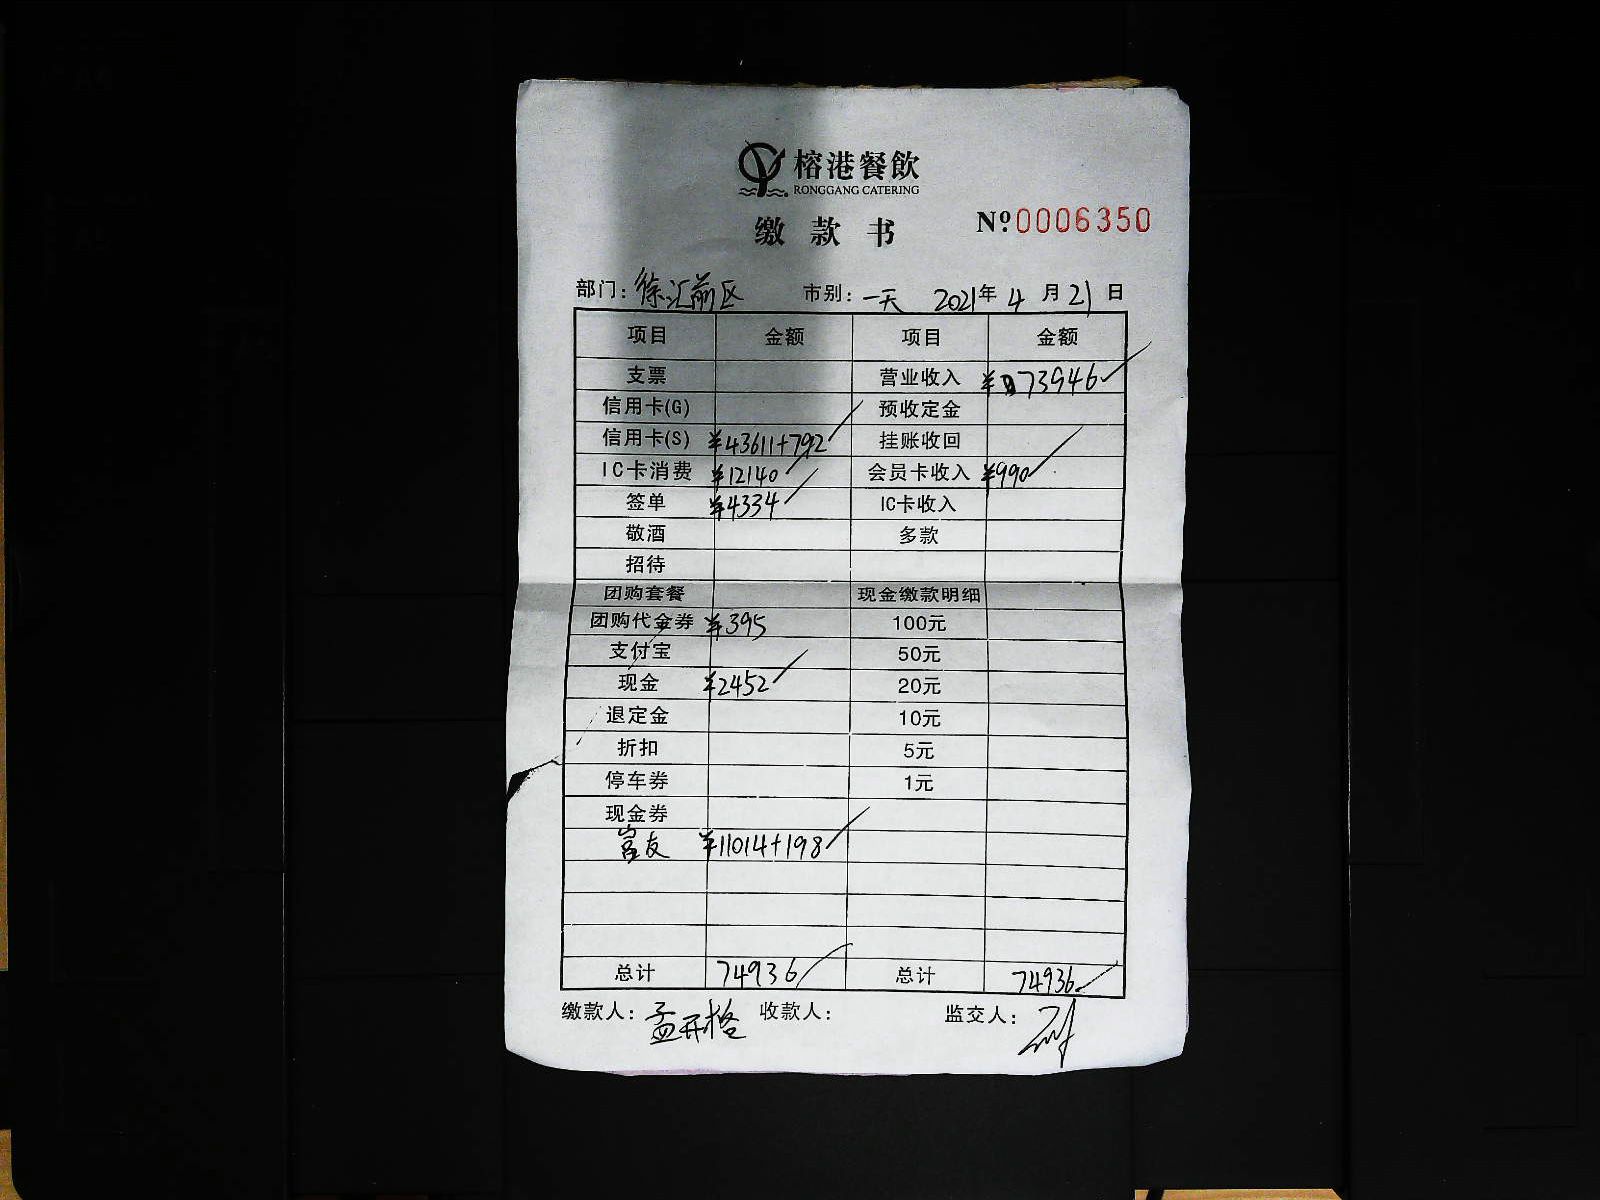 榕港餐飲
RONGGANG CATERING
缴款书 №0006350
部门：徐汇前区 市别：一天 2021年4月21日
项目 金额 项目 金额
支票 营业收入 ¥73946
信用卡(G) 预收定金
信用卡(S) ¥43611+792 挂账收回
IC卡消费 ¥12140 会员卡收入 ¥990
签单 ¥4334 IC卡收入
敬酒 多款
招待
团购套餐 现金缴款明细
团购代金券 ¥395 100元
支付宝 50元
现金 ¥2452 20元
退定金 10元
折扣 5元
停车券 1元
现金券
友 ¥11014+198
总计 74936 总计 74936
缴款人：孟开格 收款人： 监交人：